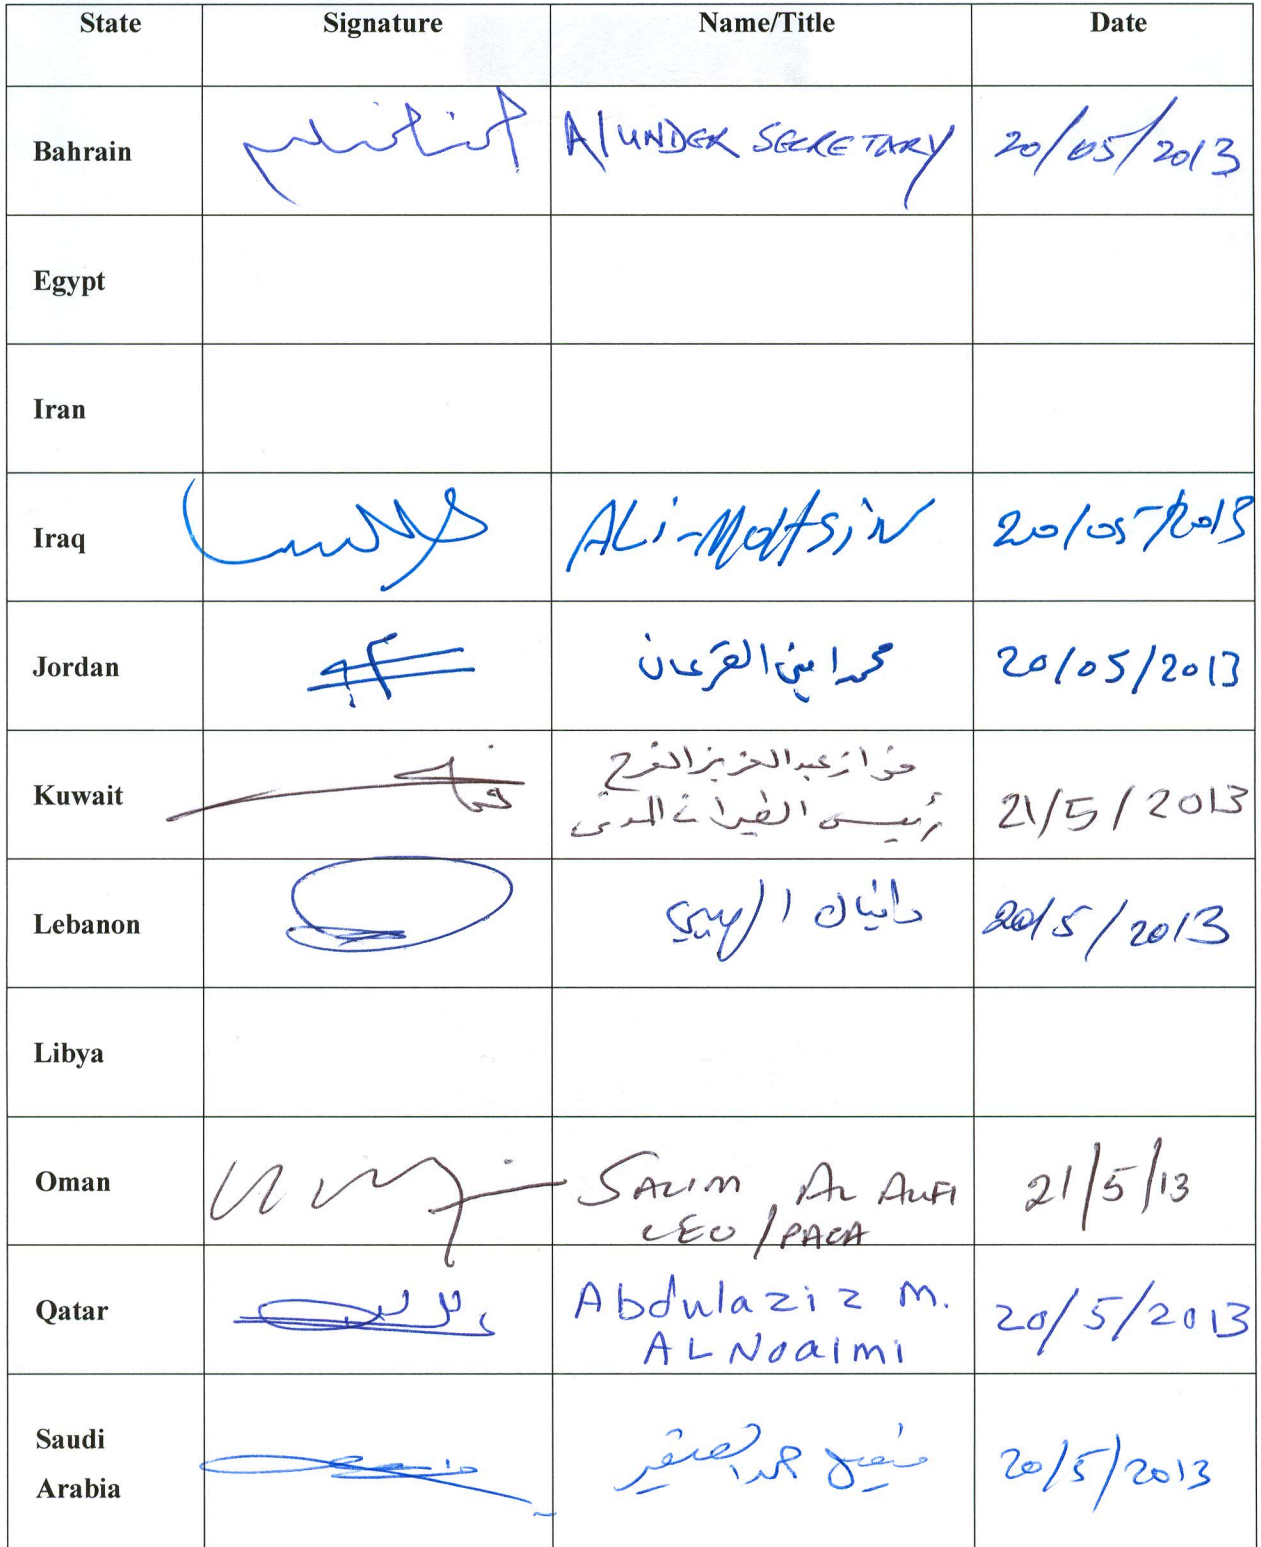 State Signature Name/Title Date
Bahrain A/UNDER SECRETARY 20/05/2013
Egypt
Iran
Iraq ALi-MoHsiN 20/05/2013
Jordan محمد امين القرعان 20/05/2013
Kuwait فواز عبدالعزيز الفرح 21/5/2013
رئيس الطيران المدني
Lebanon دانيال الهيبي 20/5/2013
Libya
Oman SALIM AL AUFI 21/5/13
CEO/PACA
Qatar Abdulaziz M. 20/5/2013
AL Noaimi
Saudi
Arabia 20/5/2013